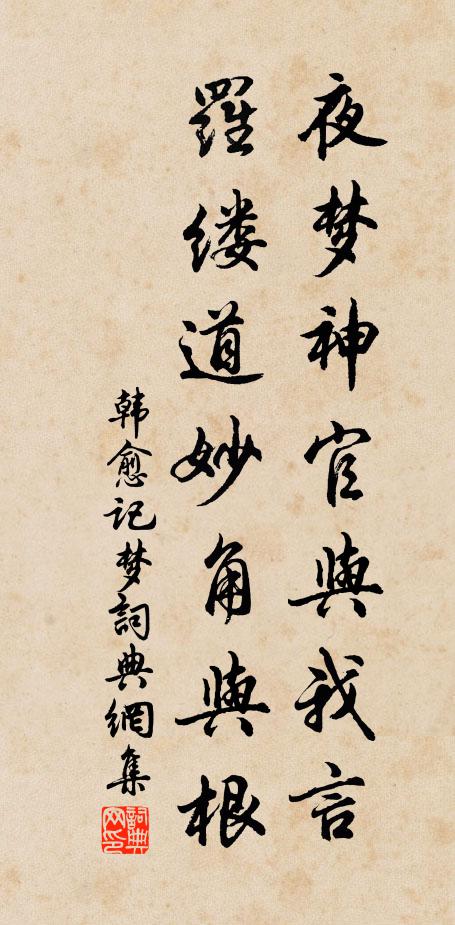 夜梦神官與我言
羅缕道妙角與根
韩愈记梦詞典網集
詞典网印